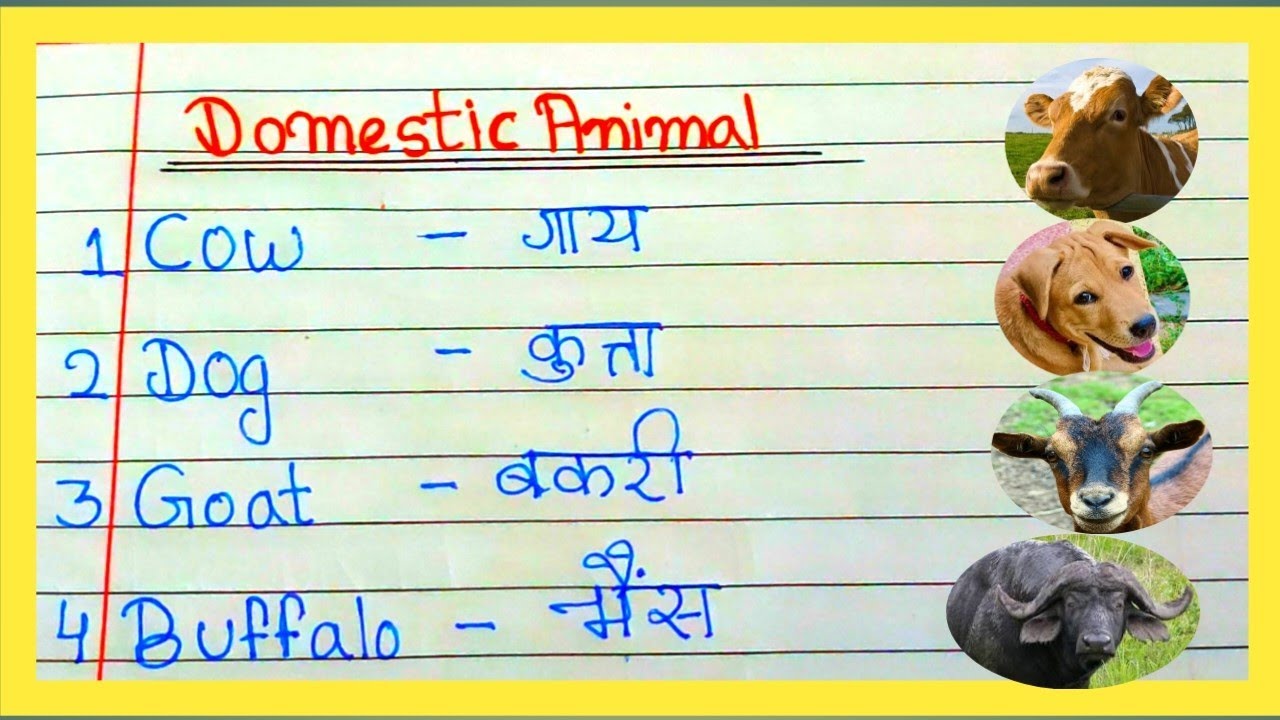 Domestic Animal
1 Cow - गाय
2 Dog - कुत्ता
3 Goat - बकरी
4 Buffalo - भैंस